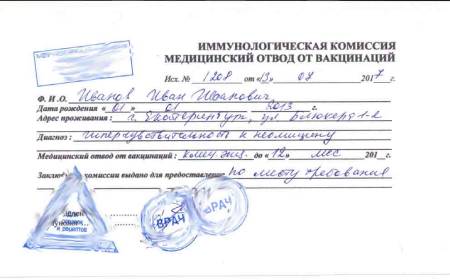 ИММУНОЛОГИЧЕСКАЯ КОМИССИЯ
МЕДИЦИНСКИЙ ОТВОД ОТ ВАКЦИНАЦИЙ
Исх. № 1208 от «13» 2017 г.
Ф. И.О. Иванов Иван Иванович
Дата рождения «01» 01 2013 г.
Адрес проживания: г. Екатеринбург, ул Блюхера 1-2
Диагноз: гиперчувствительность к неомицину
Медицинский отвод от вакцинаций: до «12» мес 201 г.
комиссии выдано для предоставления по месту требования
для
и рецептов
ВРАЧ
ВРАЧ